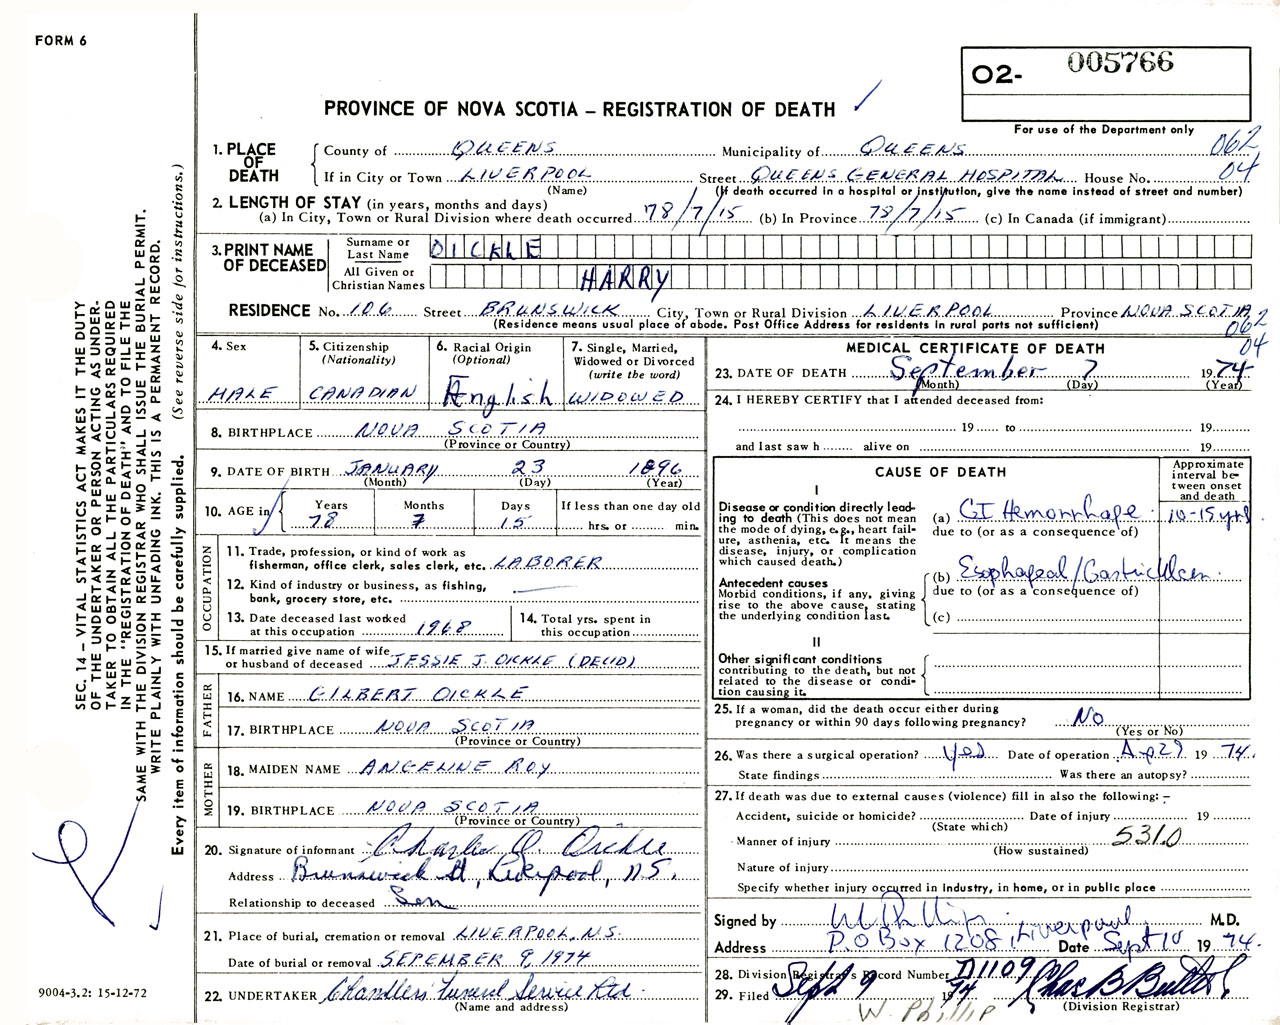 FORM 6
O2- 005766
PROVINCE OF NOVA SCOTIA – REGISTRATION OF DEATH
For use of the Department only
062
04
1. PLACE OF DEATH
County of QUEENS Municipality of QUEENS
If in City or Town LIVERPOOL Street QUEENS GENERAL HOSPITAL House No.
(Name) (If death occurred in a hospital or institution, give the name instead of street and number)
2. LENGTH OF STAY (in years, months and days)
(a) In City, Town or Rural Division where death occurred 78/7/15 (b) In Province 78/7/15 (c) In Canada (if immigrant)
3. PRINT NAME OF DECEASED
Surname or Last Name DICKLE
All Given or Christian Names HARRY
RESIDENCE No. 106 Street BRUNSWICK City, Town or Rural Division LIVERPOOL Province NOVA SCOTIA
(Residence means usual place of abode. Post Office Address for residents in rural parts not sufficient)
062
04
4. Sex
MALE
5. Citizenship
(Nationality)
CANADIAN
6. Racial Origin
(Optional)
English
7. Single, Married,
Widowed or Divorced
(write the word)
WIDOWED
8. BIRTHPLACE NOVA SCOTIA
(Province or Country)
9. DATE OF BIRTH JANUARY 23 1896
(Month) (Day) (Year)
10. AGE in
Years Months Days If less than one day old
78 7 15 hrs. or min.
OCCUPATION
11. Trade, profession, or kind of work as
fisherman, office clerk, sales clerk, etc. LABORER
12. Kind of industry or business, as fishing,
bank, grocery store, etc.
13. Date deceased last worked
at this occupation 1968
14. Total yrs. spent in
this occupation
15. If married give name of wife
or husband of deceased JESSIE J. DICKLE (DEC'D)
FATHER
16. NAME GILBERT DICKLE
17. BIRTHPLACE NOVA SCOTIA
(Province or Country)
MOTHER
18. MAIDEN NAME ANGELINE ROY
19. BIRTHPLACE NOVA SCOTIA
(Province or Country)
20. Signature of informant Charles O. Dickle
Address Brunswick St, Liverpool, N.S.
Relationship to deceased Son
21. Place of burial, cremation or removal LIVERPOOL, N.S.
Date of burial or removal SEPEMBER 9, 1974
22. UNDERTAKER Chandlers' Funeral Service Ltd.
(Name and address)
MEDICAL CERTIFICATE OF DEATH
23. DATE OF DEATH September 7 1974
(Month) (Day) (Year)
24. I HEREBY CERTIFY that I attended deceased from:
19 to 19
and last saw h alive on 19
CAUSE OF DEATH
Approximate interval between onset and death
I
Disease or condition directly leading
to death (This does not mean
the mode of dying, e.g., heart failure,
asthenia, etc. It means the
disease, injury, or complication
which caused death.)
(a) GI Hemorrhage 10-15 yrs
due to (or as a consequence of)
Antecedent causes
Morbid conditions, if any, giving
rise to the above cause, stating
the underlying condition last.
(b) Esophageal/Gastric Ulcer
due to (or as a consequence of)
(c)
II
Other significant conditions
contributing to the death, but not
related to the disease or condition
causing it.
25. If a woman, did the death occur either during
pregnancy or within 90 days following pregnancy? No
(Yes or No)
26. Was there a surgical operation? yes Date of operation Ap 29 1974.
State findings Was there an autopsy?
27. If death was due to external causes (violence) fill in also the following: –
Accident, suicide or homicide? Date of injury 19
(State which)
Manner of injury 531.0
(How sustained)
Nature of injury
Specify whether injury occurred in Industry, in home, or in public place
Signed by W Phillip M.D.
Address P.O Box 1208, Liverpool Date Sept 10 1974.
28. Division Registrar's Record Number D1109
29. Filed Sept 9 1974 Chas B Butler
(Division Registrar)
W. Phillip
SEC. 14 – VITAL STATISTICS ACT MAKES IT THE DUTY
OF THE UNDERTAKER OR PERSON ACTING AS UNDER-
TAKER TO OBTAIN ALL THE PARTICULARS REQUIRED
IN THE "REGISTRATION OF DEATH" AND TO FILE THE
SAME WITH THE DIVISION REGISTRAR WHO SHALL ISSUE THE BURIAL PERMIT.
WRITE PLAINLY WITH UNFADING INK. THIS IS A PERMANENT RECORD.
Every item of information should be carefully supplied. (See reverse side for instructions.)
9004-3.2: 15-12-72